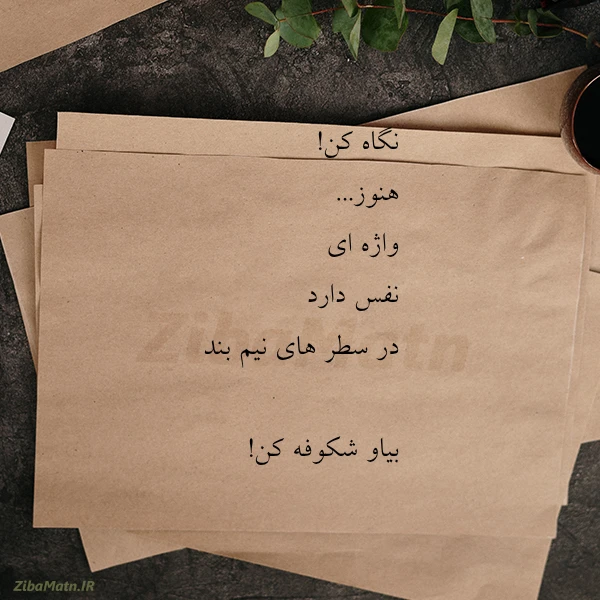 نگاه کن!
هنوز...
واژه ای
نفس دارد
در سطر های نیم بند
بیاو شکوفه کن!
ZibaMatn
ZibaMatn.IR